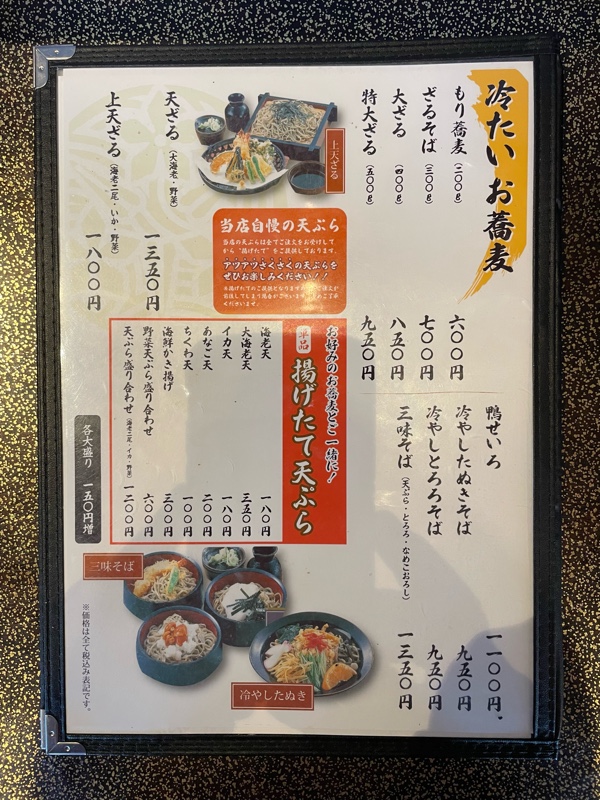 冷たいお蕎麦
もり蕎麦(二〇〇g) 六〇〇円
ざるそば(三〇〇g) 七〇〇円
大ざる(四〇〇g) 八五〇円
特大ざる(五〇〇g) 九五〇円
鴨せいろ 一一〇〇円
冷やしたぬきそば 九五〇円
冷やしとろろそば 九五〇円
三味そば(天ぷら・とろろ・なめこおろし) 一三五〇円
上天ざる
天ざる(大海老・野菜) 一三五〇円
上天ざる(海老二尾・いか・野菜) 一八〇〇円
当店自慢の天ぷら
当店の天ぷらは全てご注文をお受けして
から"揚げたて"をご提供しております。
アツアツさくさくの天ぷらを
ぜひお楽しみください!!
お好みのお蕎麦とご一緒に!
単品 揚げたて天ぷら
海老天 一八〇円
大海老天 三五〇円
イカ天 一八〇円
あなご天 二〇〇円
ちくわ天 一〇〇円
海鮮かき揚げ 三〇〇円
野菜天ぷら盛り合わせ 六〇〇円
天ぷら盛り合わせ(海老二尾・イカ・野菜) 一二〇〇円
各大盛り 一五〇円増
三味そば
冷やしたぬき
※価格は全て税込み表記です。